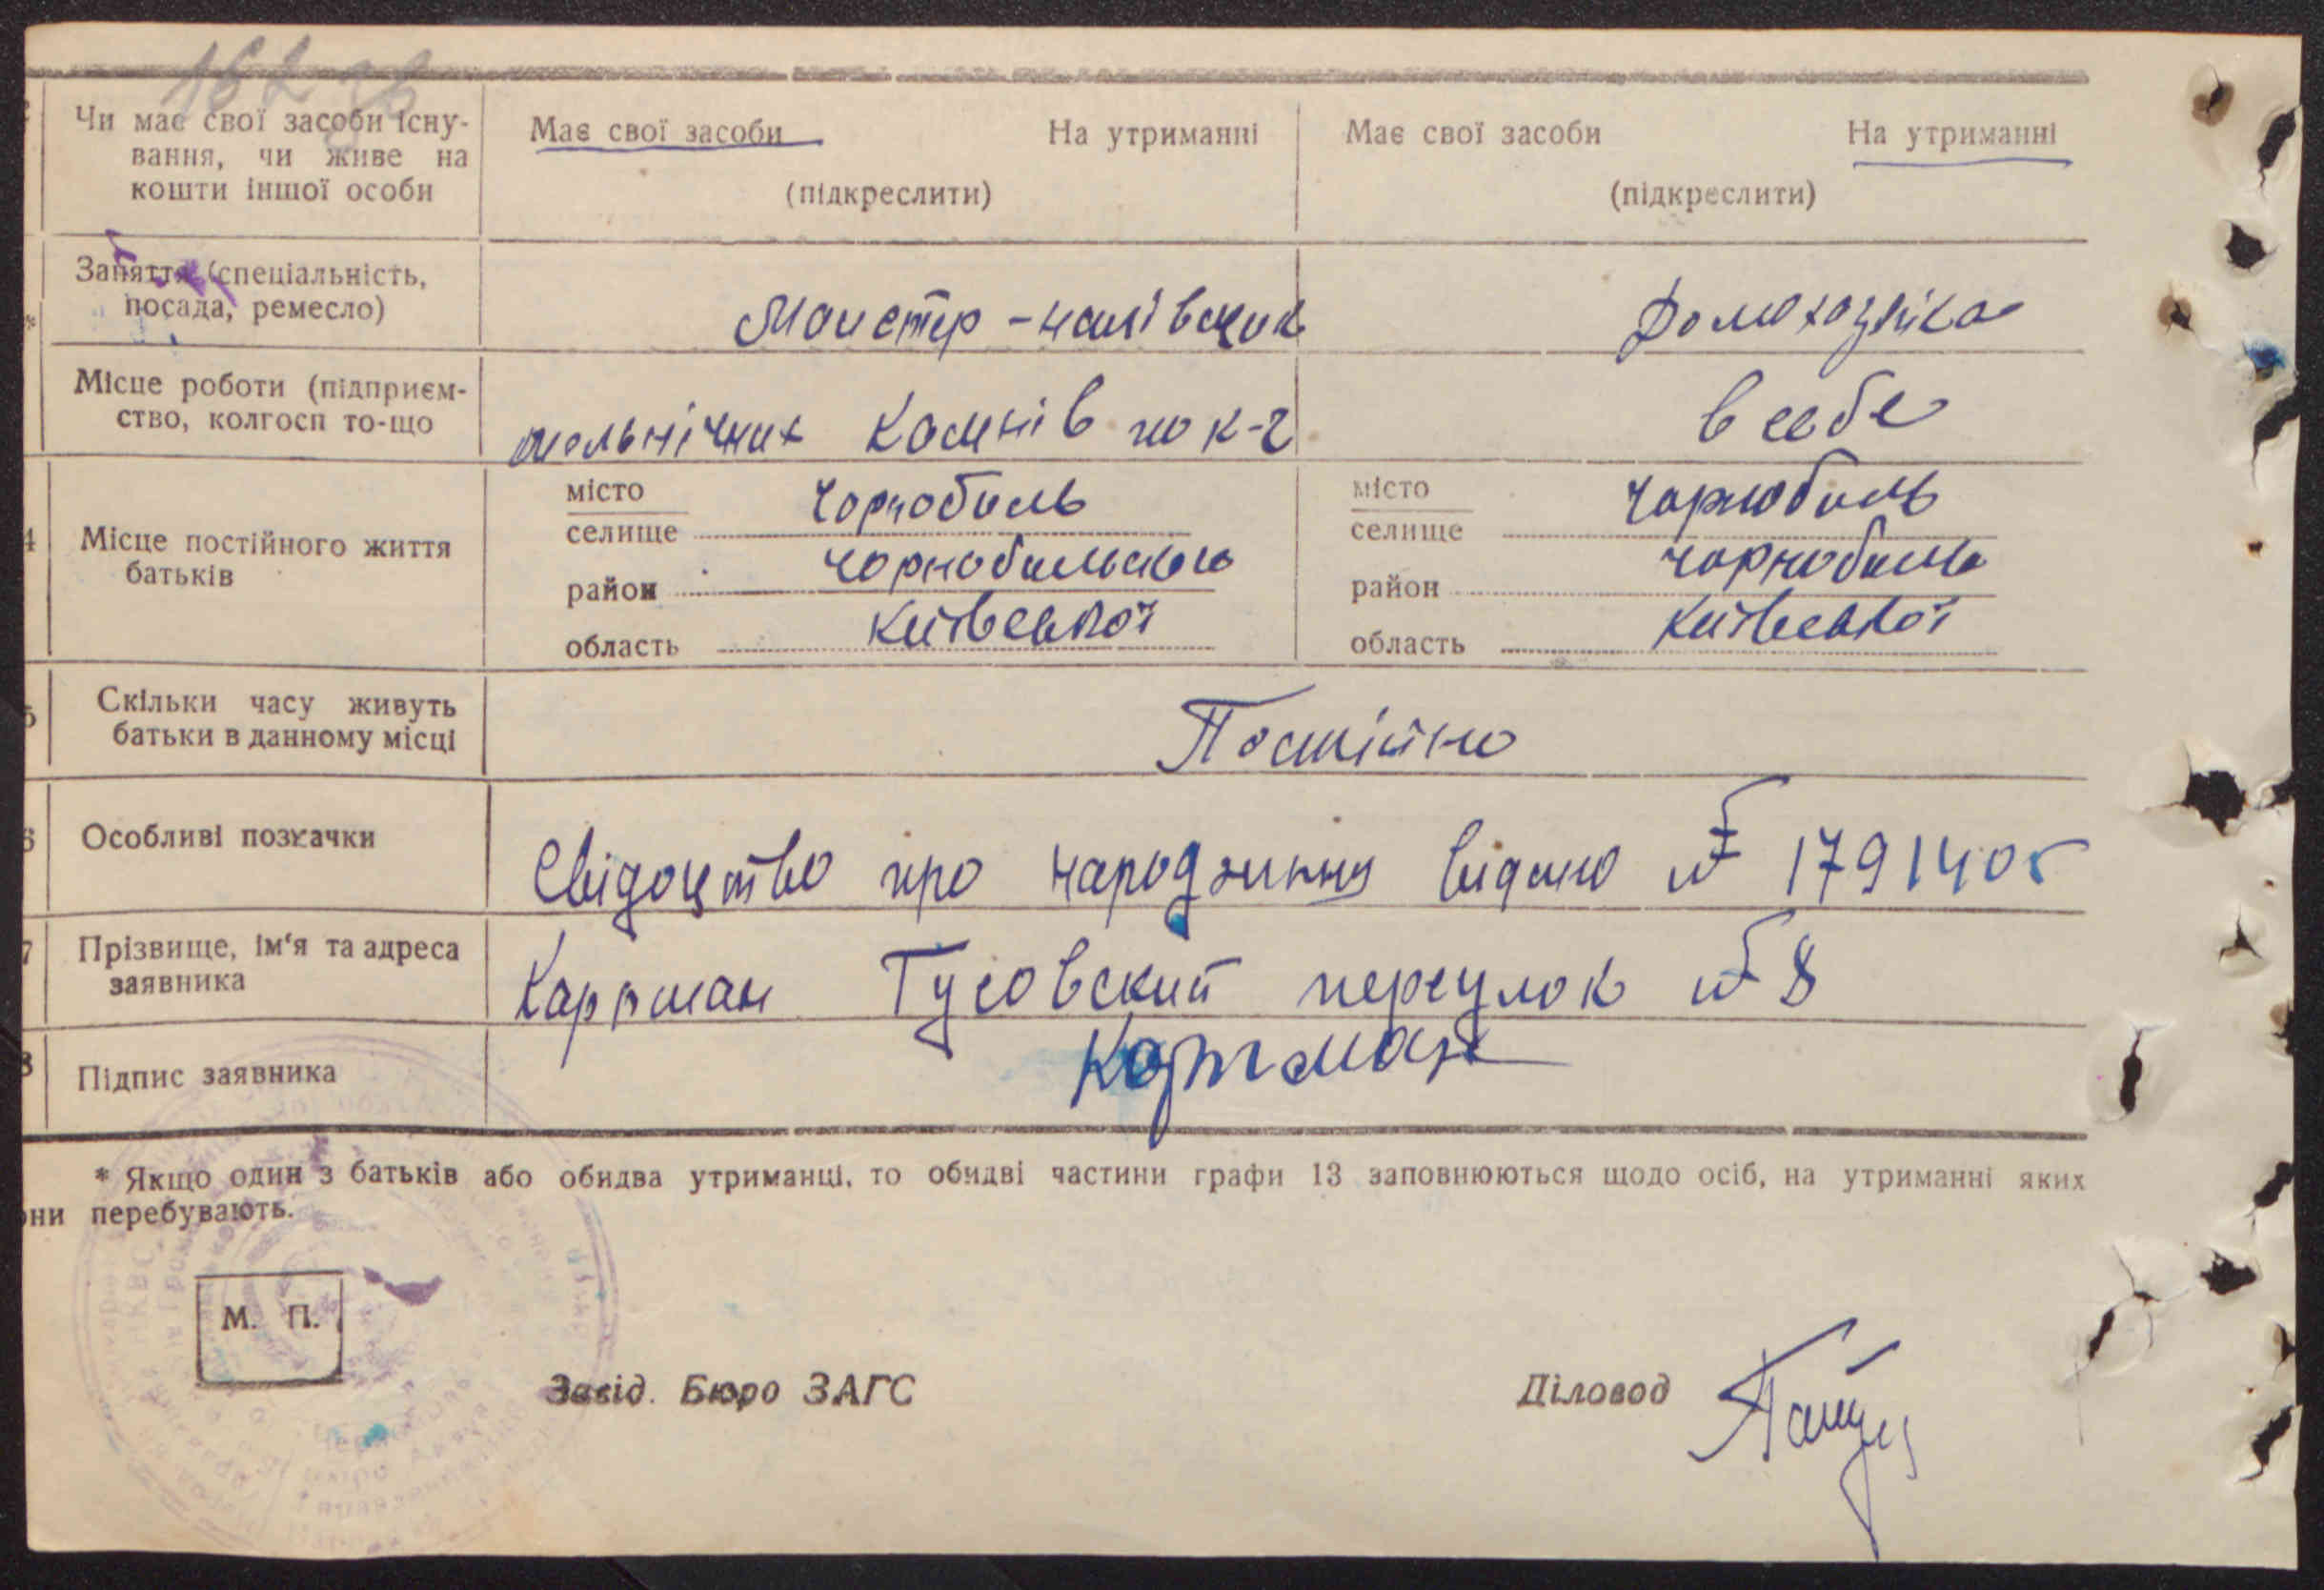 Чи має свої засоби існу-
вання, чи живе на
кошти іншої особи
Має свої засоби На утриманні
(підкреслити)
Має свої засоби На утриманні
(підкреслити)
Заняття (спеціальність,
посада, ремесло)
Майстер -
Домохозяйка
Місце роботи (підприєм-
ство, колгосп то-що
камнів по к-г
в себе
4
Місце постійного життя
батьків
місто
селище
Чорнобиль
район
Чорнобильского
область
Київської
місто
селище
Чорнобиль
район
Чорнобиль
область
Київської
5
Скільки часу живуть
батьки в данному місці
Постійно
6
Особливі позначки
Свідоцтво про народження видано № 1791405
7
Прізвище, ім‘я та адреса
заявника
Картман Гусовский переулок № 8
8
Підпис заявника
Картман
* Якщо один з батьків або обидва утриманці, то обидві частини графи 13 заповнюються щодо осіб, на утриманні яких
они перебувають.
М. П.
Завід. Бюро ЗАГС
Діловод